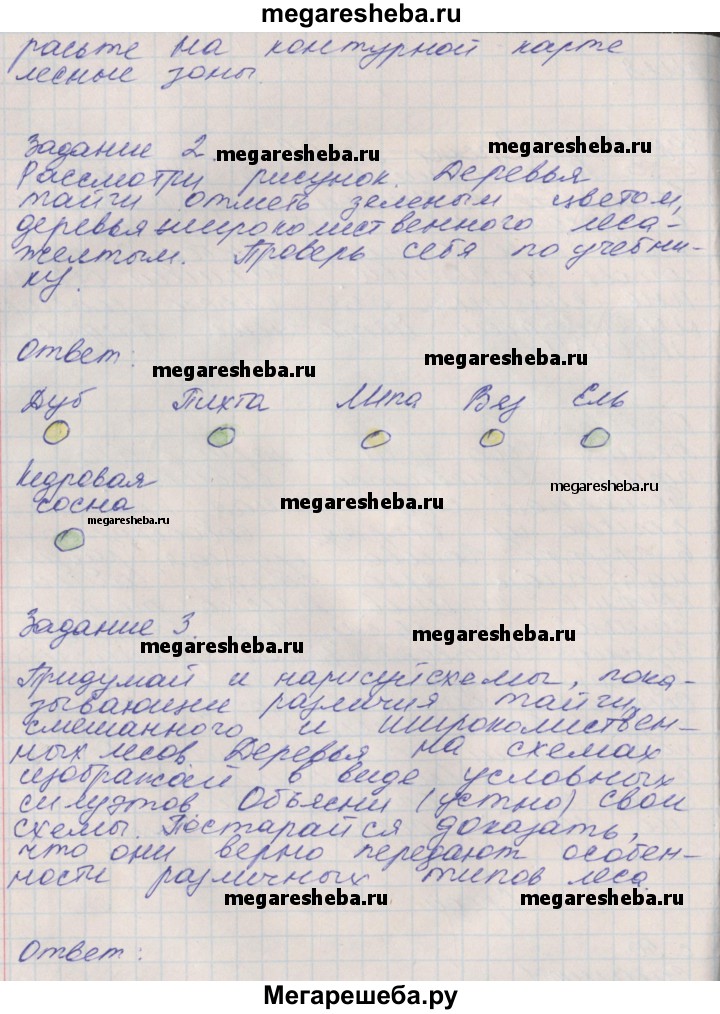 megaresheba.ru
расьте на контурной карте
лесные зоны.
Задание 2.
megaresheba.ru
megaresheba.ru
Рассмотри рисунок. Деревья
тайги отметь зеленым цветом,
деревья широколиственного леса-
желтым. Проверь себя по учебни-
ку.
Ответ:
megaresheba.ru
megaresheba.ru
Дуб Пихта Липа Вяз Ель
Кедровая
сосна
megaresheba.ru
megaresheba.ru
megaresheba.ru
Задание 3.
megaresheba.ru
megaresheba.ru
Придумай и нарисуй схемы, пока-
зывающие различия тайги,
смешанного и широколиствен-
ных лесов. Деревья на схемах
изображай в виде условных
силуэтов. Объясни (устно) свои
схемы. Постарайся доказать,
что они верно передают особен-
ности различных типов леса.
megaresheba.ru
megaresheba.ru
Ответ:
Мегарешеба.ру